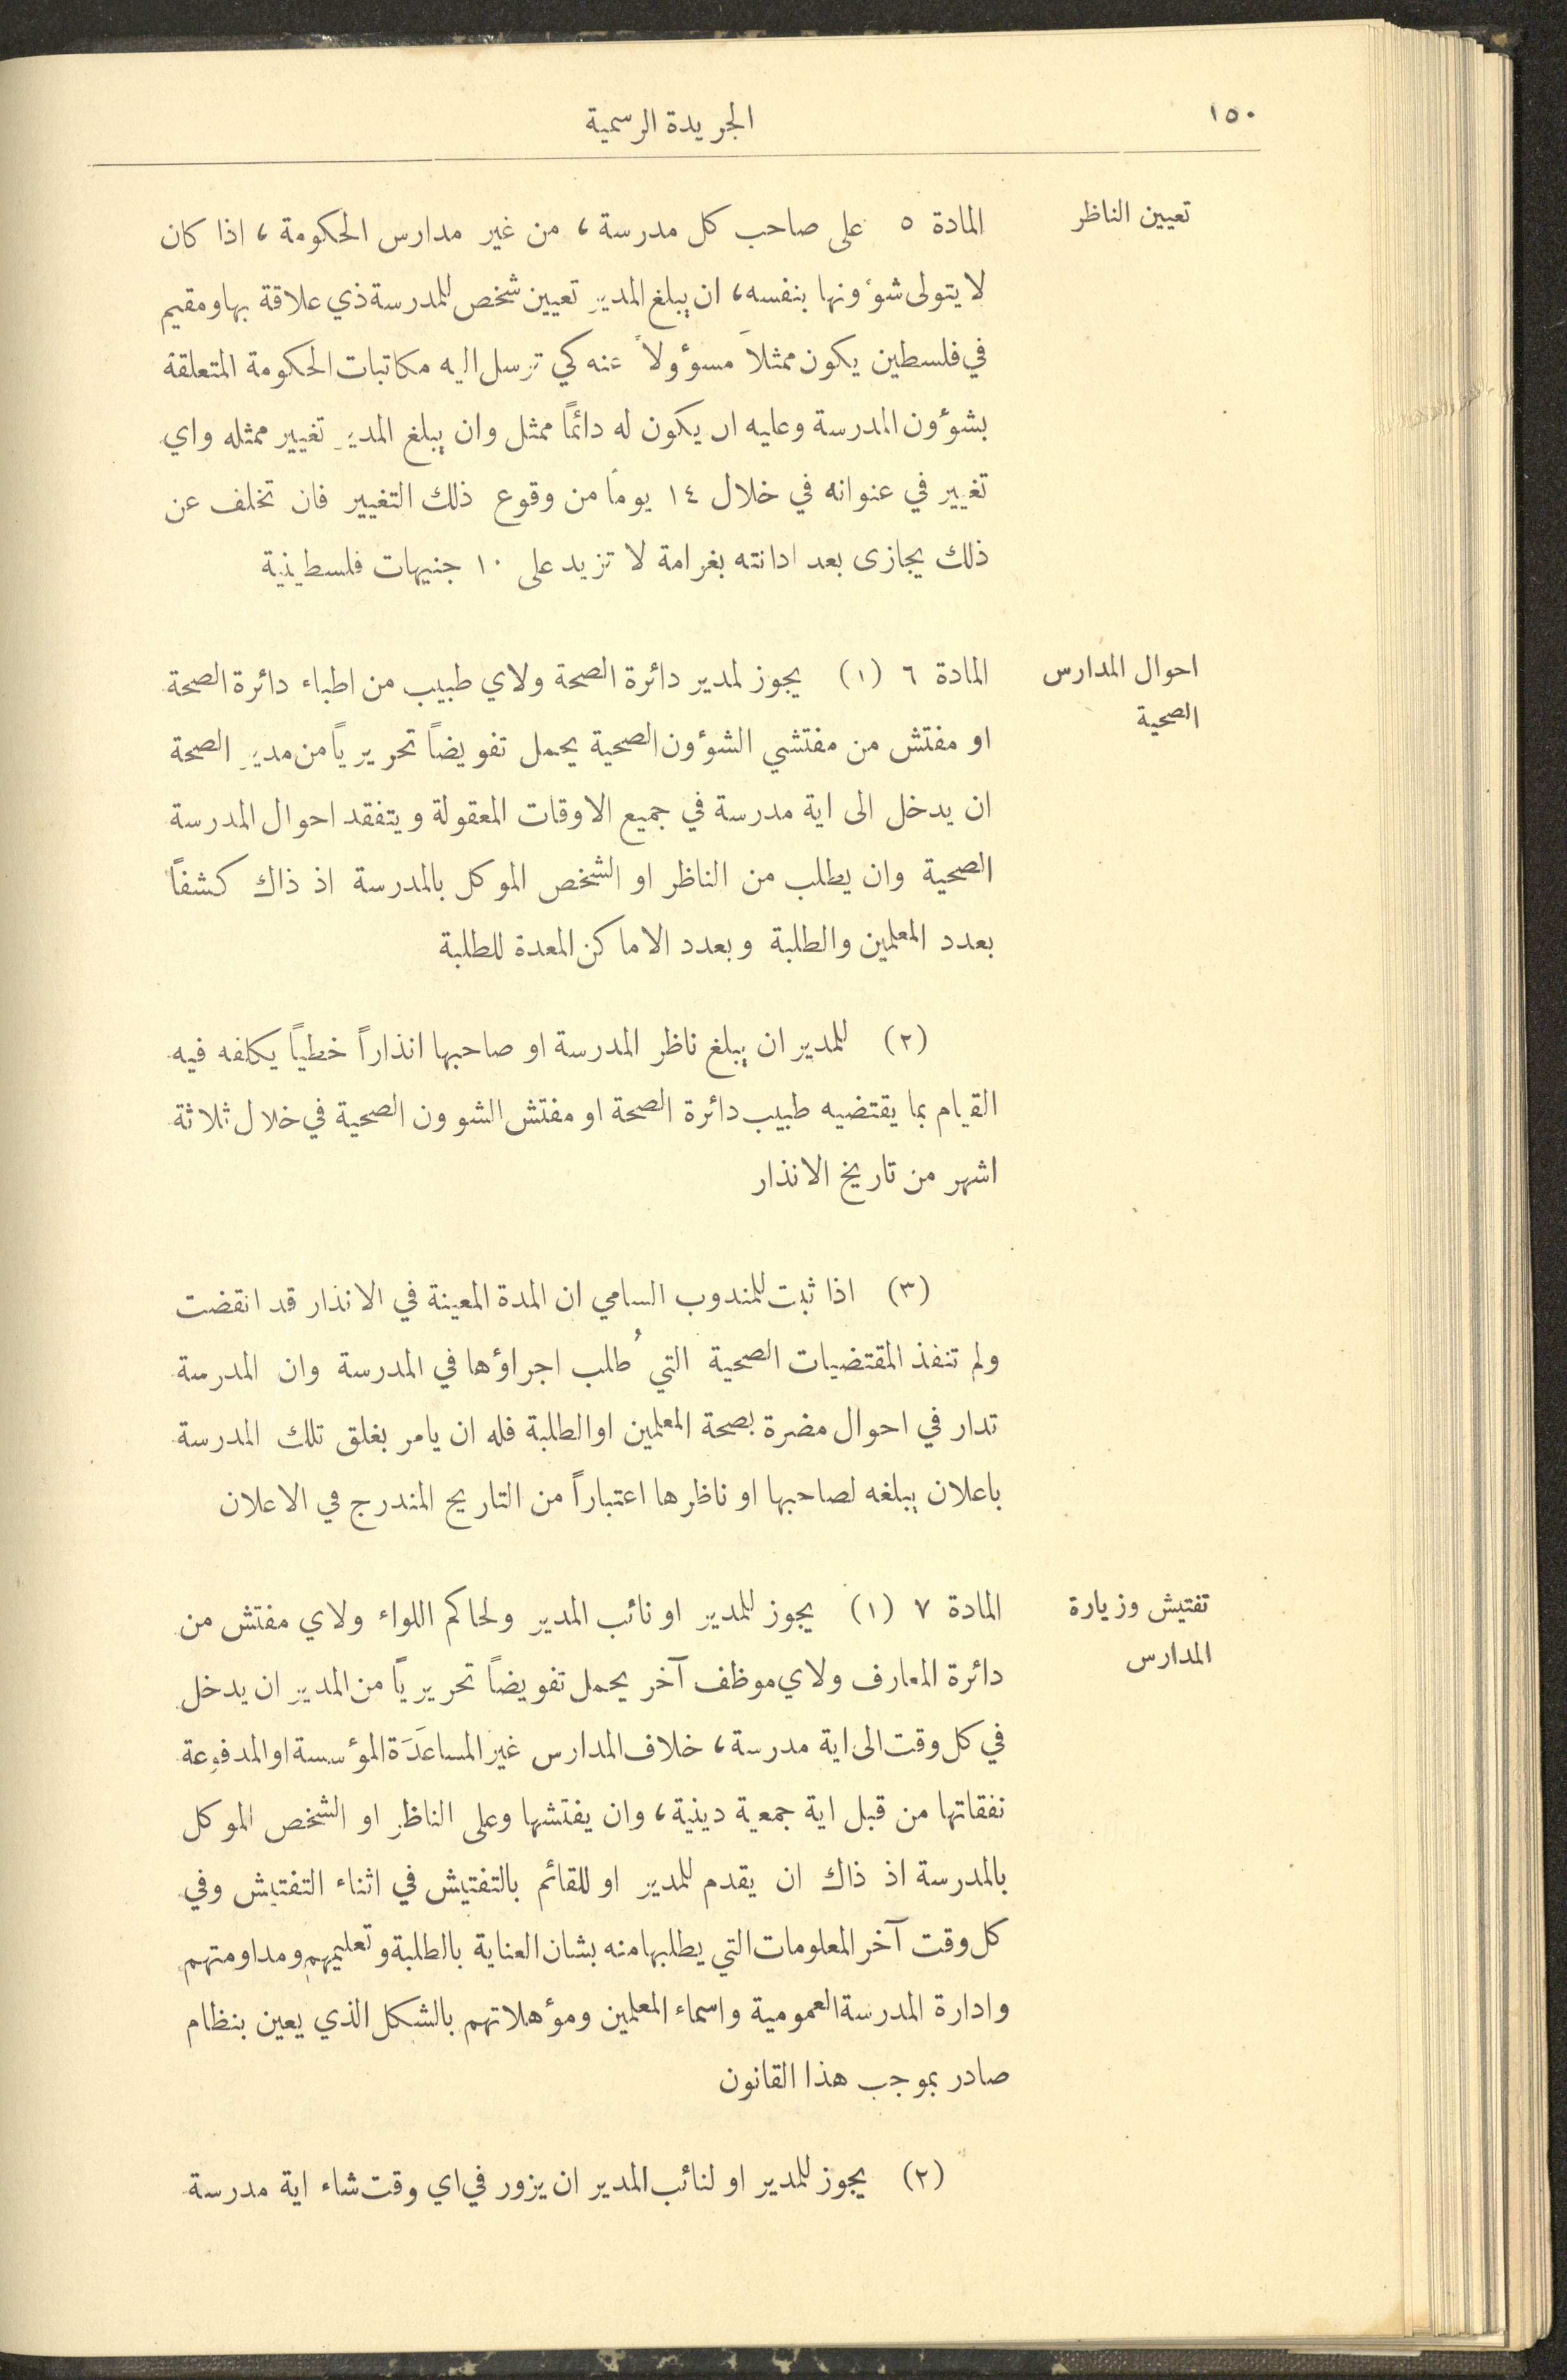 ١٥٠
الجريدة الرسمية
تعيين الناظر
المادة ٥ على صاحب كل مدرسة، من غير مدارس الحكومة، اذا كان
لا يتولى شؤونها بنفسه، ان يبلغ المدير تعيين شخص للمدرسة ذي علاقة بها ومقيم
في فلسطين يكون ممثلاً مسؤولاً عنه كي ترسل اليه مكاتبات الحكومة المتعلقة
بشؤون المدرسة وعليه ان يكون له دائماً ممثل وان يبلغ المدير تغيير ممثله واي
تغيير في عنوانه في خلال ١٤ يوماً من وقوع ذلك التغيير فان تخلف عن
ذلك يجازى بعد ادانته بغرامة لا تزيد على ١٠ جنيهات فلسطينية
احوال المدارس
الصحية
المادة ٦ (١) يجوز لمدير دائرة الصحة ولاي طبيب من اطباء دائرة الصحة
او مفتش من مفتشي الشؤون الصحية يحمل تفويضاً تحريرياً من مدير الصحة
ان يدخل الى اية مدرسة في جميع الاوقات المعقولة ويتفقد احوال المدرسة
الصحية وان يطلب من الناظر او الشخص الموكل بالمدرسة اذ ذاك كشفاً
بعدد المعلمين والطلبة وبعدد الاماكن المعدة للطلبة
(٢) للمدير ان يبلغ ناظر المدرسة او صاحبها انذاراً خطياً يكلفه فيه
القيام بما يقتضيه طبيب دائرة الصحة او مفتش الشوون الصحية في خلال ثلاثة
اشهر من تاريخ الانذار
(٣) اذا ثبت للمندوب السامي ان المدة المعينة في الانذار قد انقضت
ولم تنفذ المقتضيات الصحية التي طُلب اجراؤها في المدرسة وان المدرسة
تدار في احوال مضرة بصحة المعلمين او الطلبة فله ان يامر بغلق تلك المدرسة
باعلان يبلغه لصاحبها او ناظرها اعتباراً من التاريخ المندرج في الاعلان
تفتيش وزيارة
المدارس
المادة ٧ (١) يجوز للمدير او نائب المدير ولحاكم اللواء ولاي مفتش من
دائرة المعارف ولاي موظف آخر يحمل تفويضاً تحريرياً من المدير ان يدخل
في كل وقت الى اية مدرسة، خلاف المدارس غير المساعَدَة المؤسسة او المدفوعة
نفقاتها من قبل اية جمعية دينية، وان يفتشها وعلى الناظر او الشخص الموكل
بالمدرسة اذ ذاك ان يقدم للمدير او للقائم بالتفتيش في اثناء التفتيش وفي
كل وقت آخر المعلومات التي يطلبها منه بشان العناية بالطلبة وتعليمهم ومداومتهم
وادارة المدرسة العمومية واسماء المعلمين ومؤهلاتهم بالشكل الذي يعين بنظام
صادر بموجب هذا القانون
(٢) يجوز للمدير او لنائب المدير ان يزور في اي وقت شاء اية مدرسة